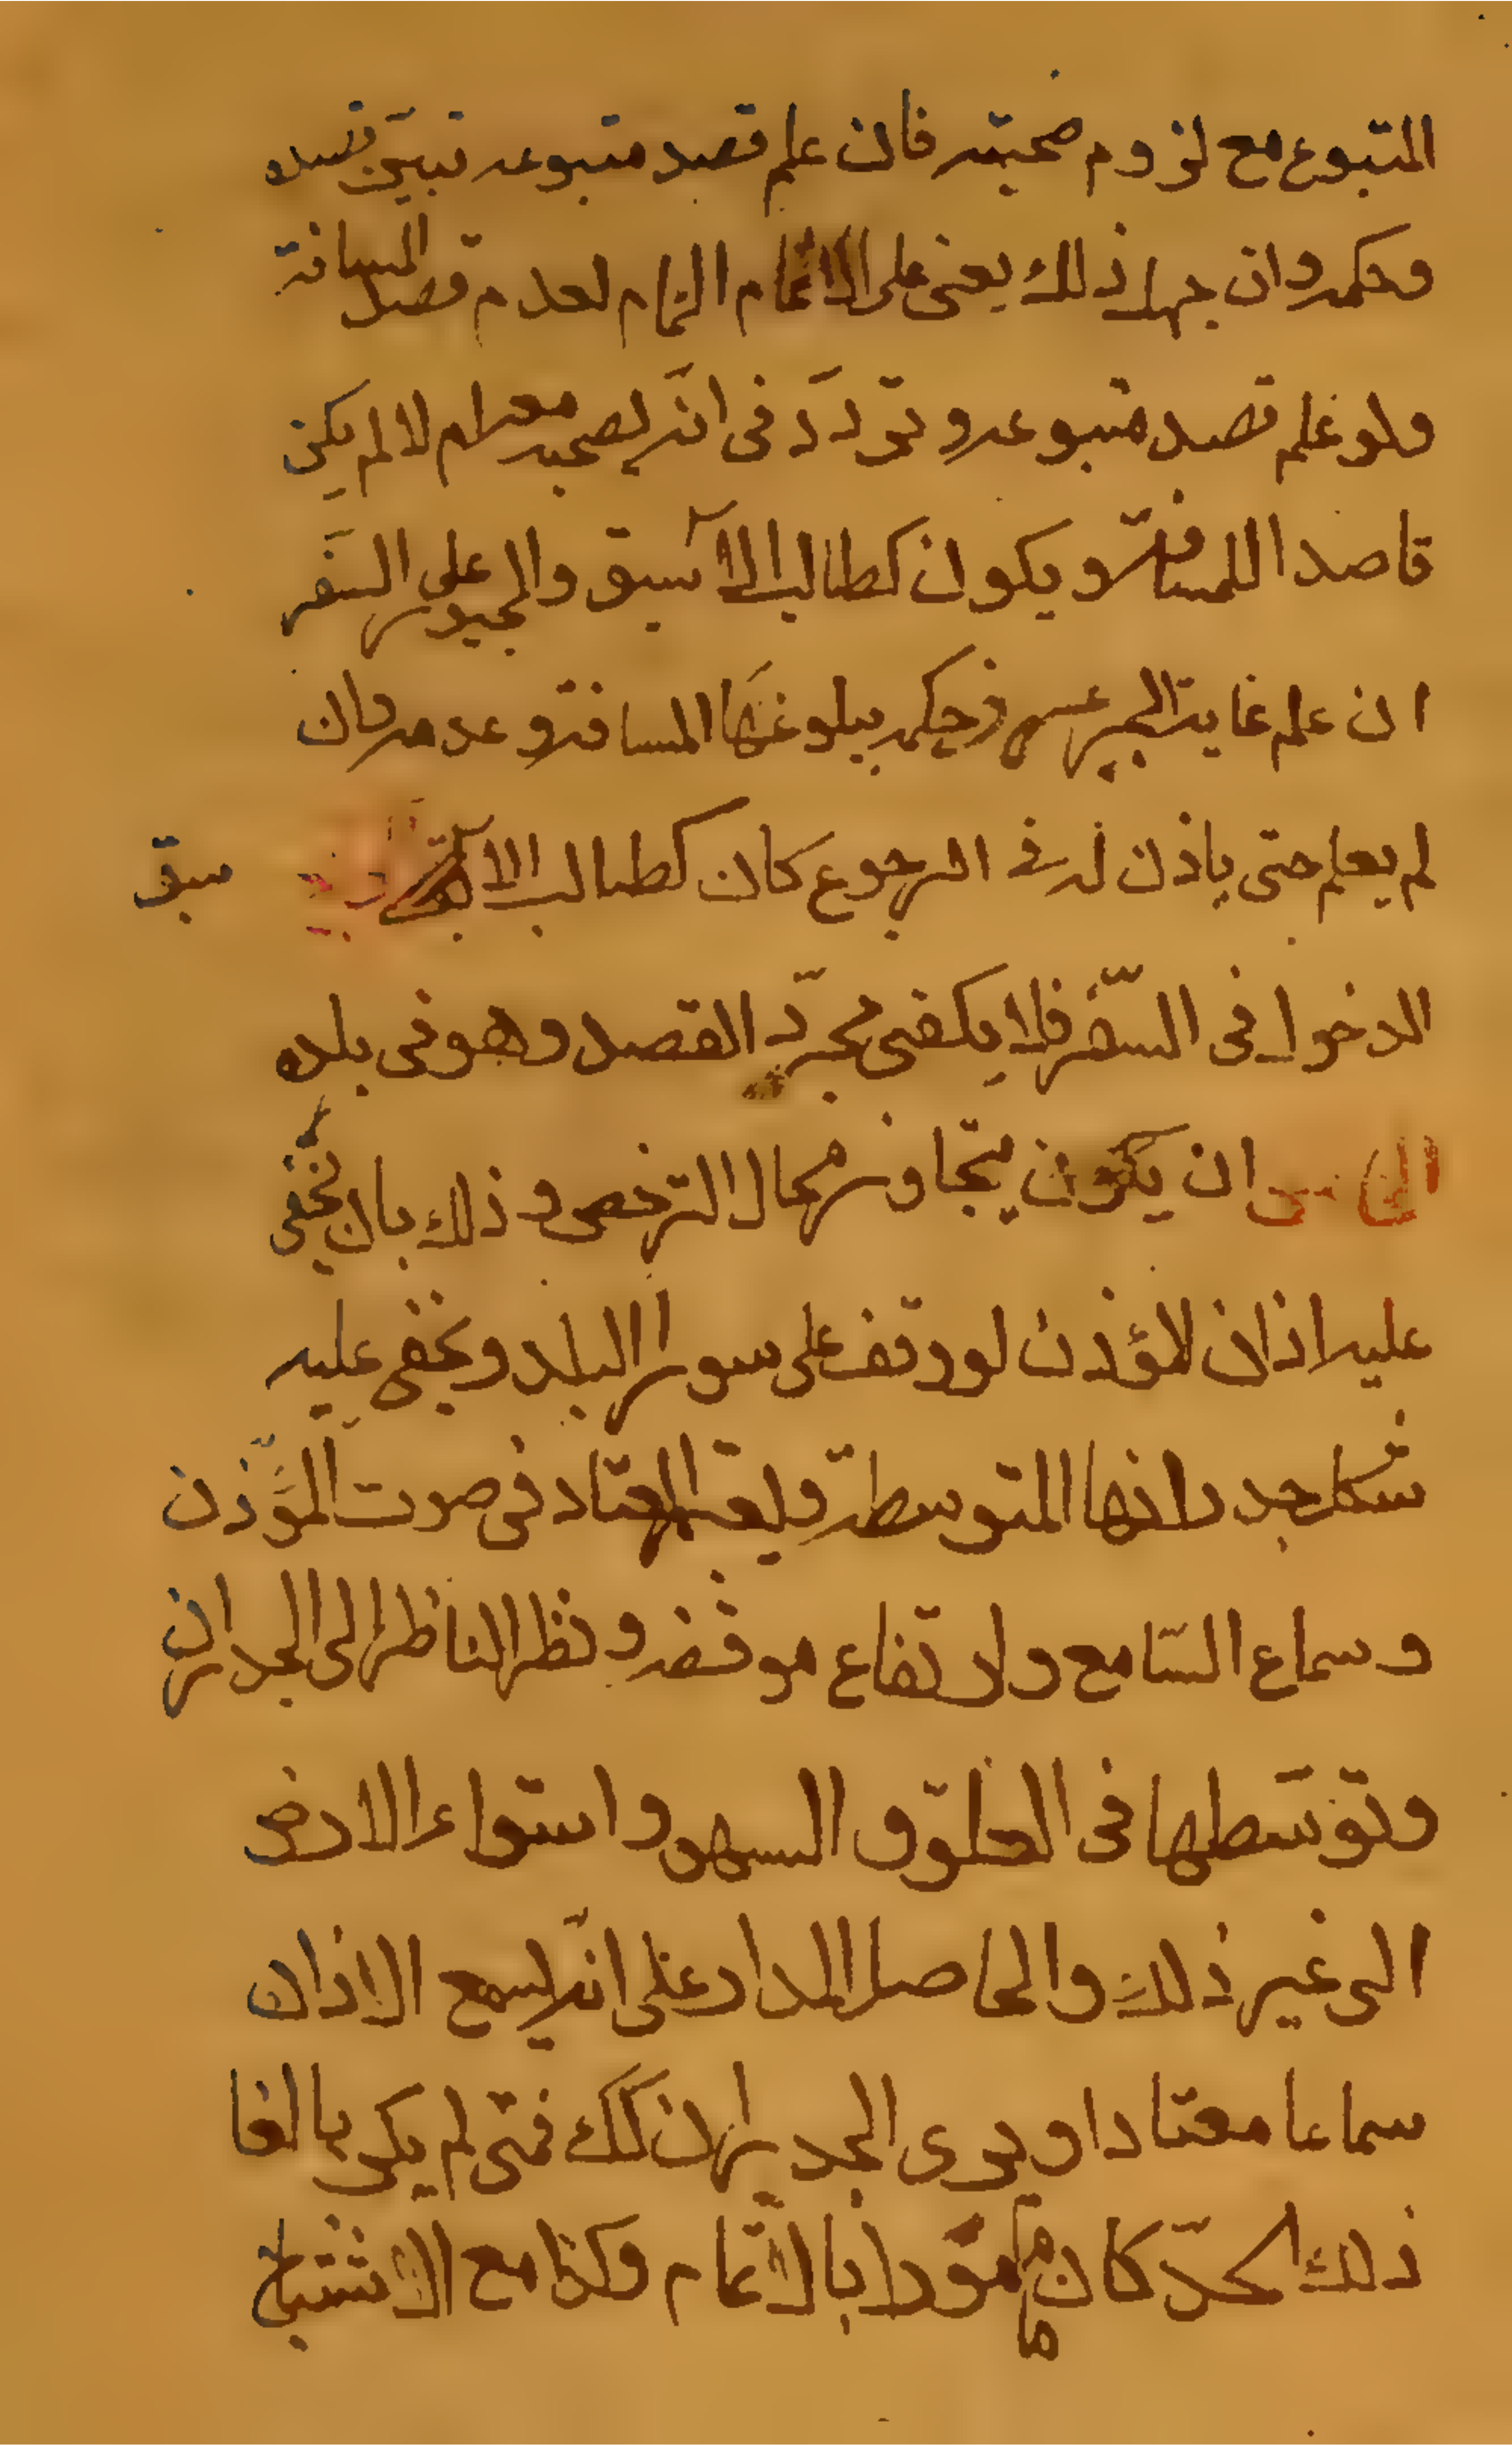 المتبوع مع لزوم صحبته فان علم قصد متبوعه تبين قصده
وحكمه وان جهل ذلك يعنى على الاتمام التمام لعدم قصد المسافة
ولو علم قصد متبوعه وتردد فى انه يصحبه معه ام لا لم يكن
قاصدا للمسافة ويكون كطالب الآبق والمجبور على السفر
ان علم غاية الجبر حكمه ببلوغها المسافة وعدمه وان
لم يعلم حتى ياذن له فى الرجوع كان كطالب الآبق
الدخول فى السفر فلا يكفى مجرّد القصد وهو فى بلده
ان يكون يتجاوز محال الترخص وذلك بان يخفى
عليه اذان المؤذن لو وقف على سور البلد ويخفى عليه
شكل جدرانها المتوسطة وليعتبر المعتاد فى صوت المؤذن
وسماع السامع وارتفاع موقفه ونظر الناظر الى الجدران
وتوسّطها فى العلوّ و السهو واستواء الارض
الى غير ذلك والحاصل المدار على انه يسمع الاذان
سماعا معتادا ويرى الجدران كذلك فمتى لم يكن بالغا
ذلك الحدّ كان مامورا بالاتمام وكذا مع الاشتباه